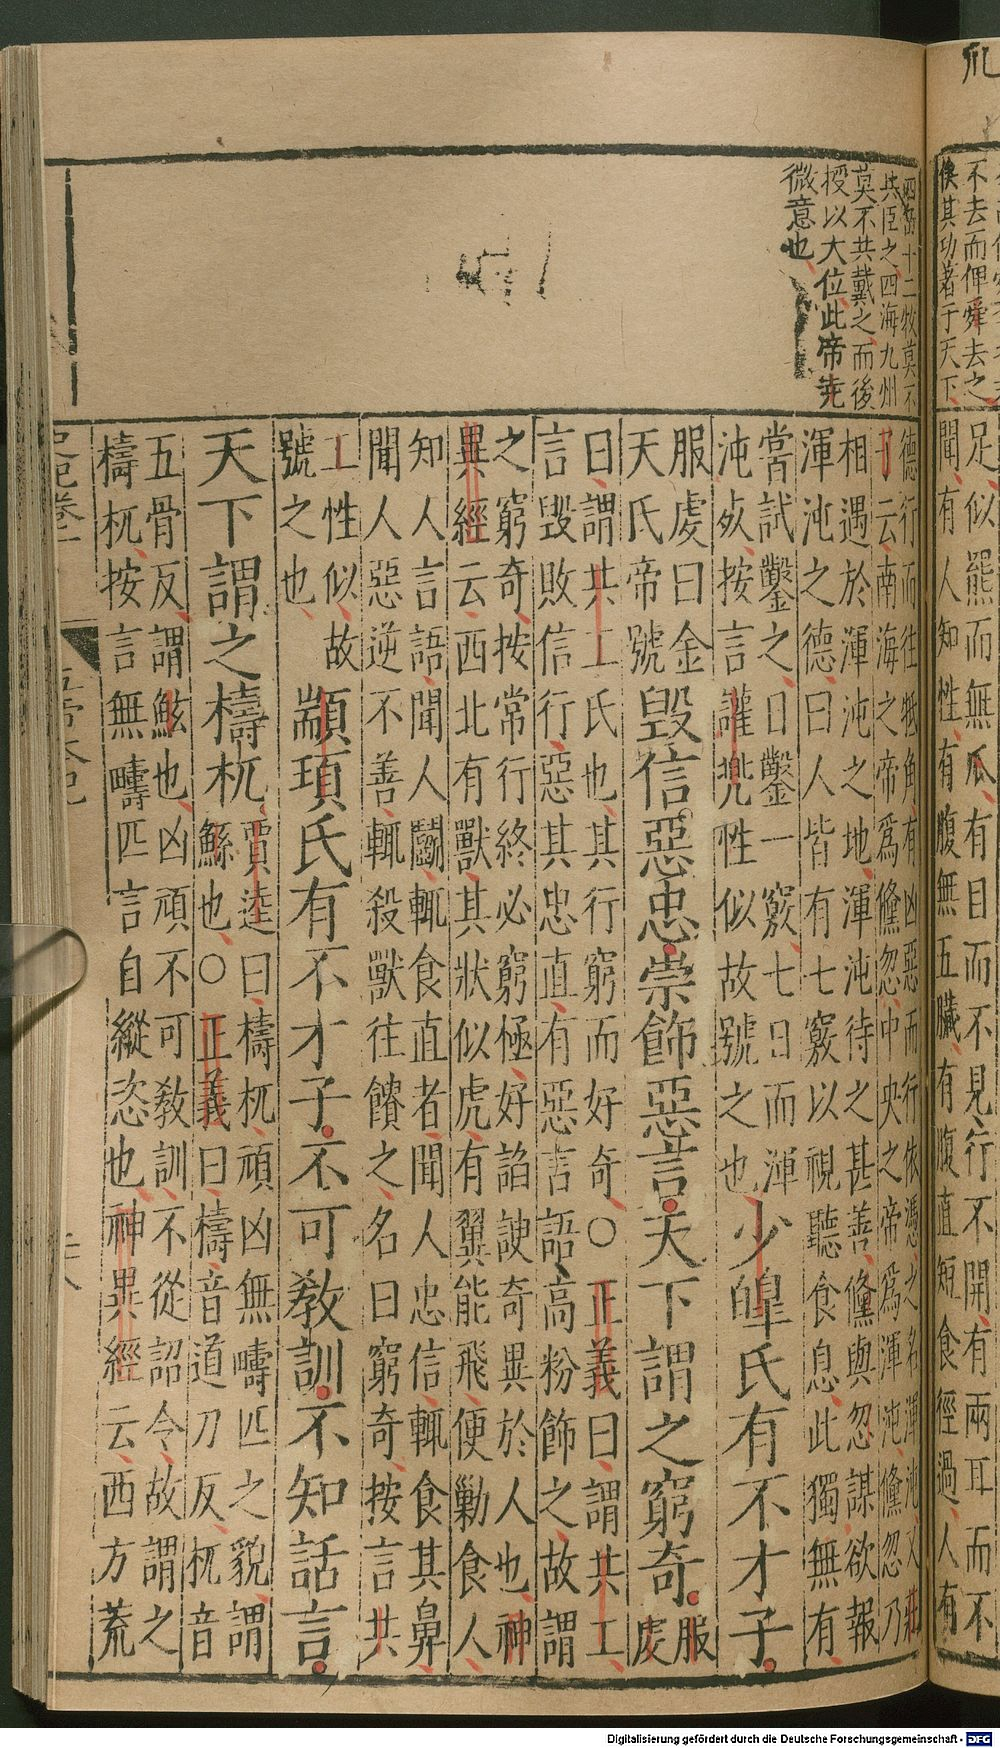 不去而俾舜去之
俟其功著于天下
足似羆而無爪有目而不見行不開有兩耳而不
聞有人知性有腹無五臟有腹直短食徑過人有
四岳十二牧莫不
共臣之四海九州
莫不共戴之而後
授以大位此帝堯
微意也
德行而往牴角有凶惡而行依憑之名渾沌又莊
子云南海之帝爲儵忽中央之帝爲渾沌儵忽乃
相遇於渾沌之地渾沌待之甚善儵與忽謀欲報
渾沌之德曰人皆有七竅以視聽食息此獨無有
嘗試鑿之日鑿一竅七日而渾
沌死按言讙兜性似故號之也
少皥氏有不才子
服虔曰金
天氏帝號
毁信惡忠崇飾惡言天下謂之窮奇
服
虔
曰謂共工氏也其行窮而好奇○正義曰謂共工
言毀敗信行惡其忠直有惡言語高粉飾之故謂
之窮奇按常行終必窮極好諂諛奇異於人也神
異經云西北有獸其狀似虎有翼能飛便勦食人
知人言語聞人鬭輒食直者聞人忠信輒食其鼻
聞人惡逆不善輒殺獸往饋之名曰窮奇按言共
工性似故
號之也
顓頊氏有不才子不可敎訓不知話言
天下謂之檮杌
賈逵曰檮杌頑凶無疇匹之貌謂
鯀也○正義曰檮音道刀反杌音
五骨反謂鯀也凶頑不可敎訓不從詔令故謂之
檮杌按言無疇匹言自縱恣也神異經云西方荒
史記卷一 五帝本紀
Digitalisierung gefördert durch die Deutsche Forschungsgemeinschaft - DFG